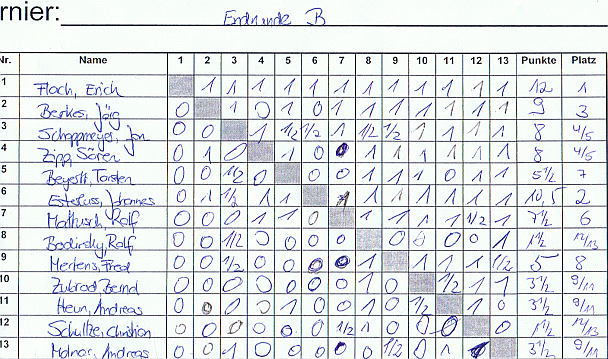 rnier: Endrunde B
Nr. Name 1 2 3 4 5 6 7 8 9 10 11 12 13 Punkte Platz
1 Floch, Erich 1 1 1 1 1 1 1 1 1 1 1 1 12 1
2 Berkes, Jörg 0 1 0 1 0 1 1 1 1 1 1 1 9 3
3 Schoppmeyer, Jan 0 0 1 1/2 1/2 1 1/2 1/2 1 1 1 1 8 4/5
4 Zipp, Sören 0 1 0 1 0 0 1 1 1 1 1 1 8 4/5
5 Torsten 0 0 1/2 0 0 0 1 1 1 0 1 1 5 1/2 7
6 Johannes 0 1 1/2 1 1 1 1 1 1 1 1 1 10,5 2
7 Ralf 0 0 0 1 1 0 1 1 1 1 1/2 1 7 1/2 6
8 Bodirsky, Ralf 0 0 1/2 0 0 0 0 0 0 1 0 0 1 1/2 12/13
9 Mertens, Fred 0 0 1/2 0 0 0 0 1 1 1 1 1/2 5 8
10 Zubrod, Bernd 0 0 0 0 0 0 0 1 0 1/2 1 1 3 1/2 9/11
11 Heun, Andreas 0 0 0 0 1 0 0 0 0 1/2 1 0 3 1/2 9/11
12 Schultze, Christian 0 0 0 0 0 0 1/2 1 0 0 0 0 1 1/2 12/13
13 Molnar, Andreas 0 0 0 0 0 0 0 1 1/2 0 1 1 3 1/2 9/11